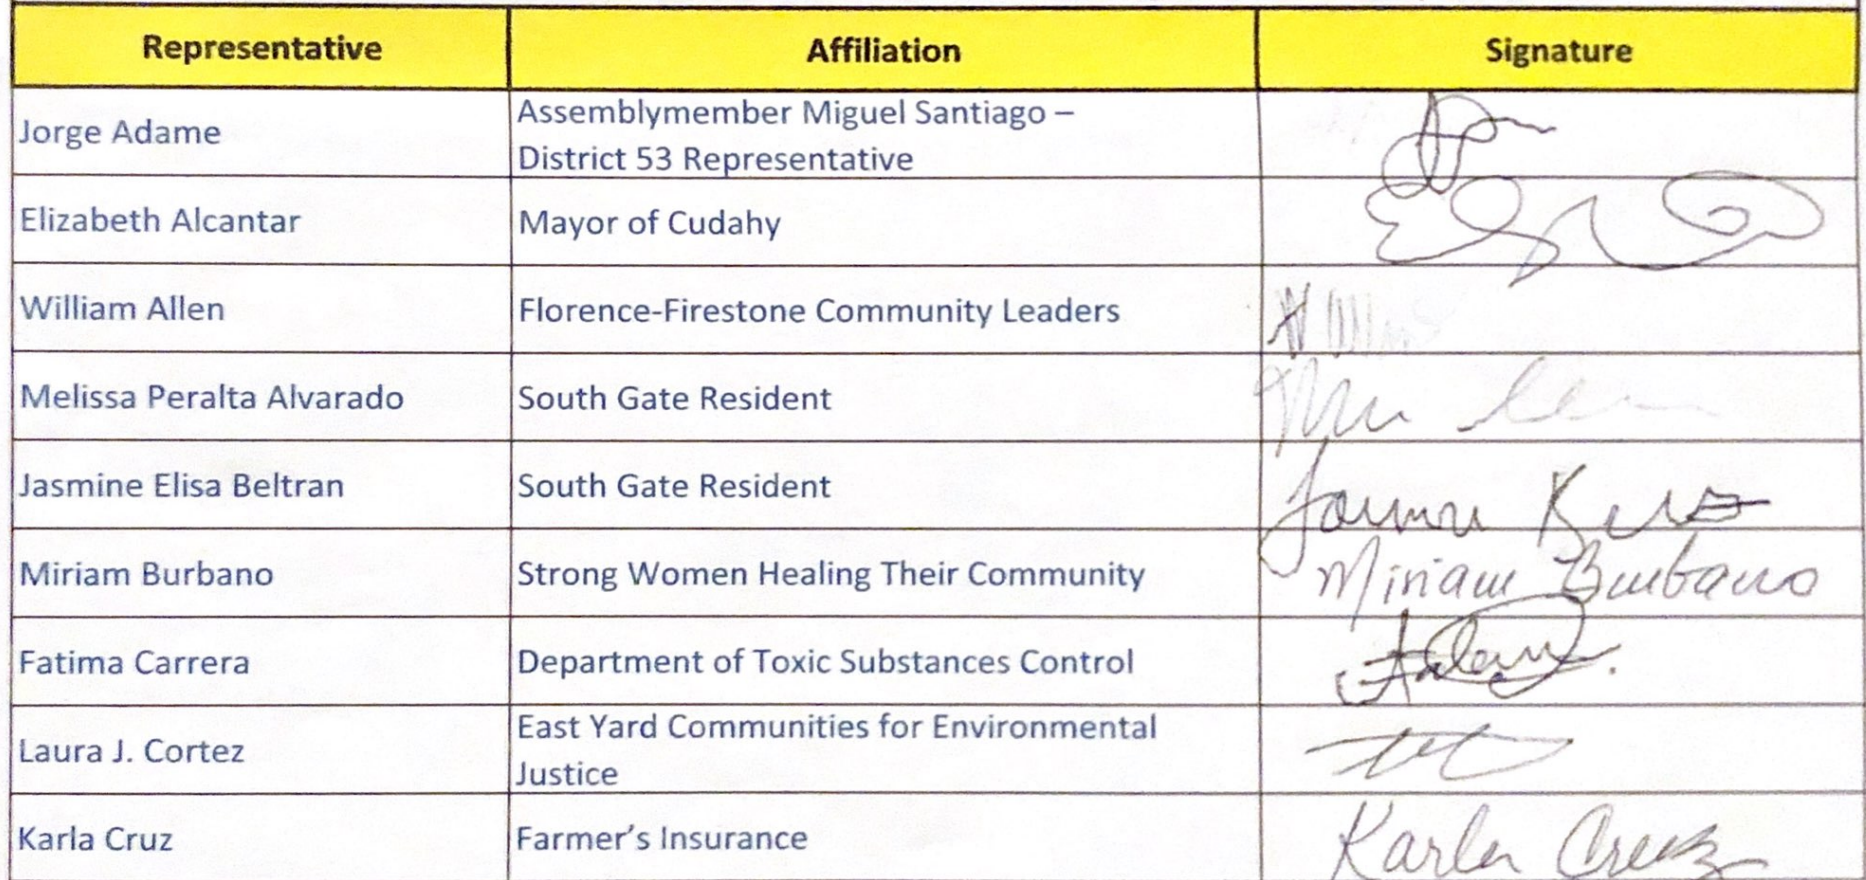 Representative Affiliation Signature
Jorge Adame Assemblymember Miguel Santiago –
District 53 Representative
Elizabeth Alcantar Mayor of Cudahy
William Allen Florence-Firestone Community Leaders
Melissa Peralta Alvarado South Gate Resident
Jasmine Elisa Beltran South Gate Resident
Miriam Burbano Strong Women Healing Their Community Miriam Burbano
Fatima Carrera Department of Toxic Substances Control
Laura J. Cortez East Yard Communities for Environmental
Justice
Karla Cruz Farmer’s Insurance Karla Cruz